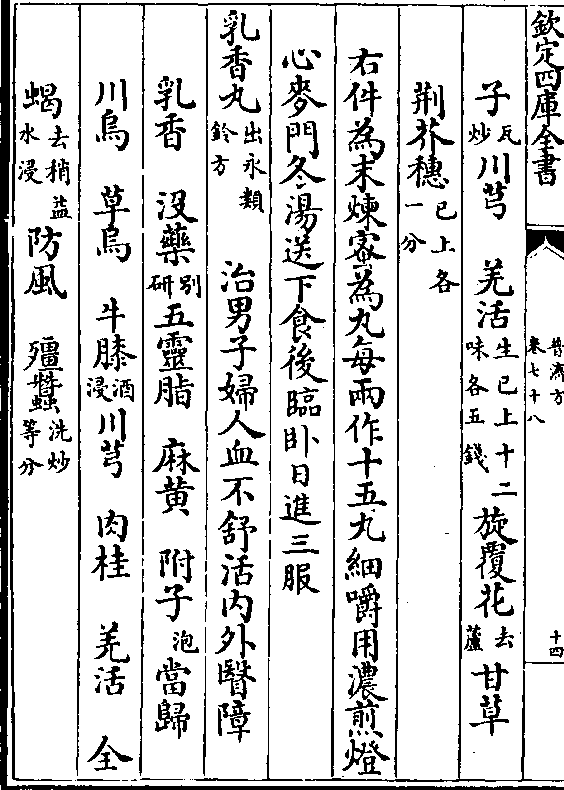 欽定四庫全書
普濟方
卷七十八
十四
子瓦炒川芎 羌活生已上十二味各五錢旋覆花去蘆甘草
荆芥穗已上各一分
右件為末煉宻為丸每兩作十五丸細嚼用濃煎燈
心麥門冬湯送下食後臨卧日進三服
乳香丸出永類鈐方 治男子婦人血不舒活内外醫障
乳香 没藥别研五靈脂 麻黄 附子泡當歸
川烏 草烏 牛膝酒浸川芎 肉桂 羌活 全
蝎去稍益水浸防風 殭蠶洗炒等分